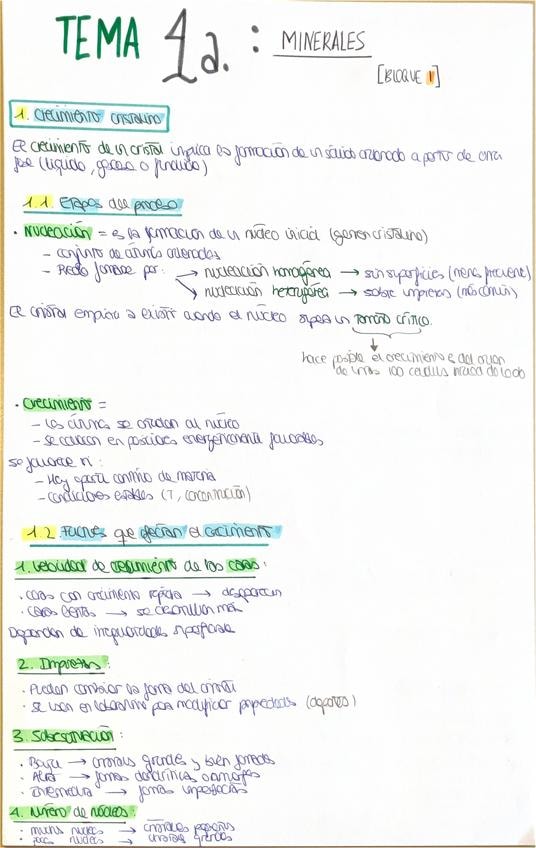 TEMA 1a. : MINERALES
[BLOQUE 1]
1. Crecimiento cristalino
El crecimiento de un cristal implica la formación de un sólido ordenado a partir de otra
fase (líquido, gaseosa o fundido)
1.1. Etapas del proceso
· Nucleación = es la formación de un núcleo inicial (germen cristalino)
- conjunto de átomos ordenados
- Puede formarse por: → nucleación homogénea → sin superficies (menos frecuente)
→ nucleación heterogénea → sobre impurezas (más común)
El cristal empieza a existir cuando el núcleo supera un tamaño crítico.
hace posible el crecimiento es del orden
de unas 100 celdillas unidad de lado
· Crecimiento =
- Los átomos se añaden al núcleo
- se colocan en posiciones energéticamente favorables
se favorece si:
- Hay aporte continuo de materia
- condiciones estables (T, concentración)
1.2. Factores que afectan el crecimiento
1. Velocidad de crecimiento de las caras:
· caras con crecimiento rápido → desaparecen
· Caras lentas → se desarrollan más
Dependen de irregularidades superficiales
2. Impurezas:
· Pueden cambiar la forma del cristal
· se usan en laboratorio para modificar propiedades (dopantes)
3. Sobresaturación:
· Baja → cristales grandes y bien formados
· Alta → formas dendríticas o amorfas
· Intermedia → formas imperfectas
4. Número de núcleos:
· muchos núcleos → cristales pequeños
· pocos núcleos → cristales grandes